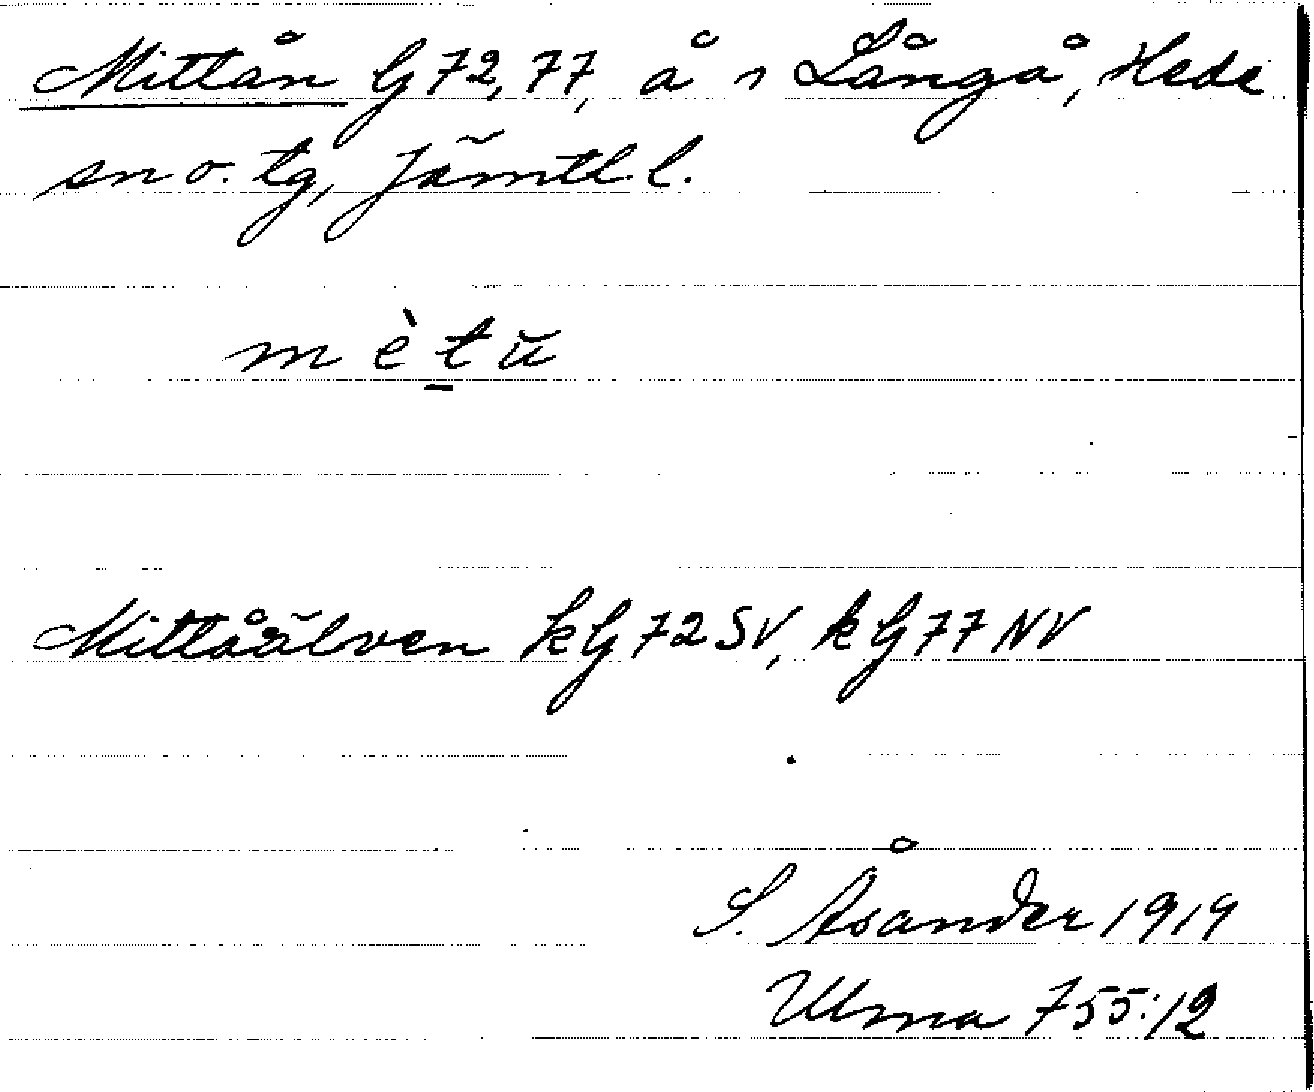 Mittån G 72, 77, å i Långå, Hede
sn o. tg, Jämtl. l.
m è t ŭ
Mittåälven kG 72 SV, kG 77 NV
S. Åsander 1919
Ulma 755:12